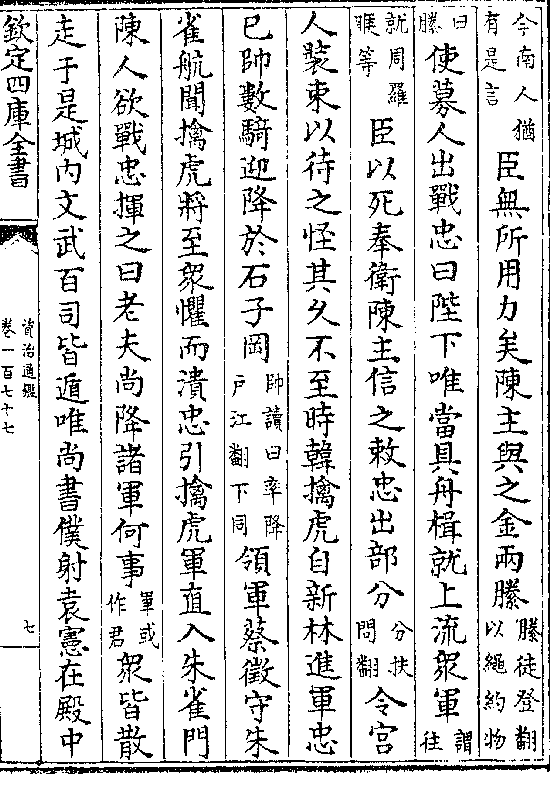 今南人猶有是言臣無所用力矣陳主與之金兩縢縢徒登翻以繩約物
曰縢使募人出戰忠曰陛下唯當具舟楫就上流衆軍謂往
就周羅睺等臣以死奉衛陳主信之敕忠出部分分扶問翻令宫
人裝束以待之怪其久不至時韓擒虎自新林進軍忠
已帥數騎迎降於石子岡帥讀曰率降戸江翻下同領軍蔡徵守朱
雀航聞擒虎將至衆懼而潰忠引擒虎軍直入朱雀門
陳人欲戰忠揮之曰老夫尚降諸軍何事軍或作君衆皆散
走于是城内文武百司皆遁唯尚書僕射袁憲在殿中
欽定四庫全書
資治通鑑
卷一百七十七
七